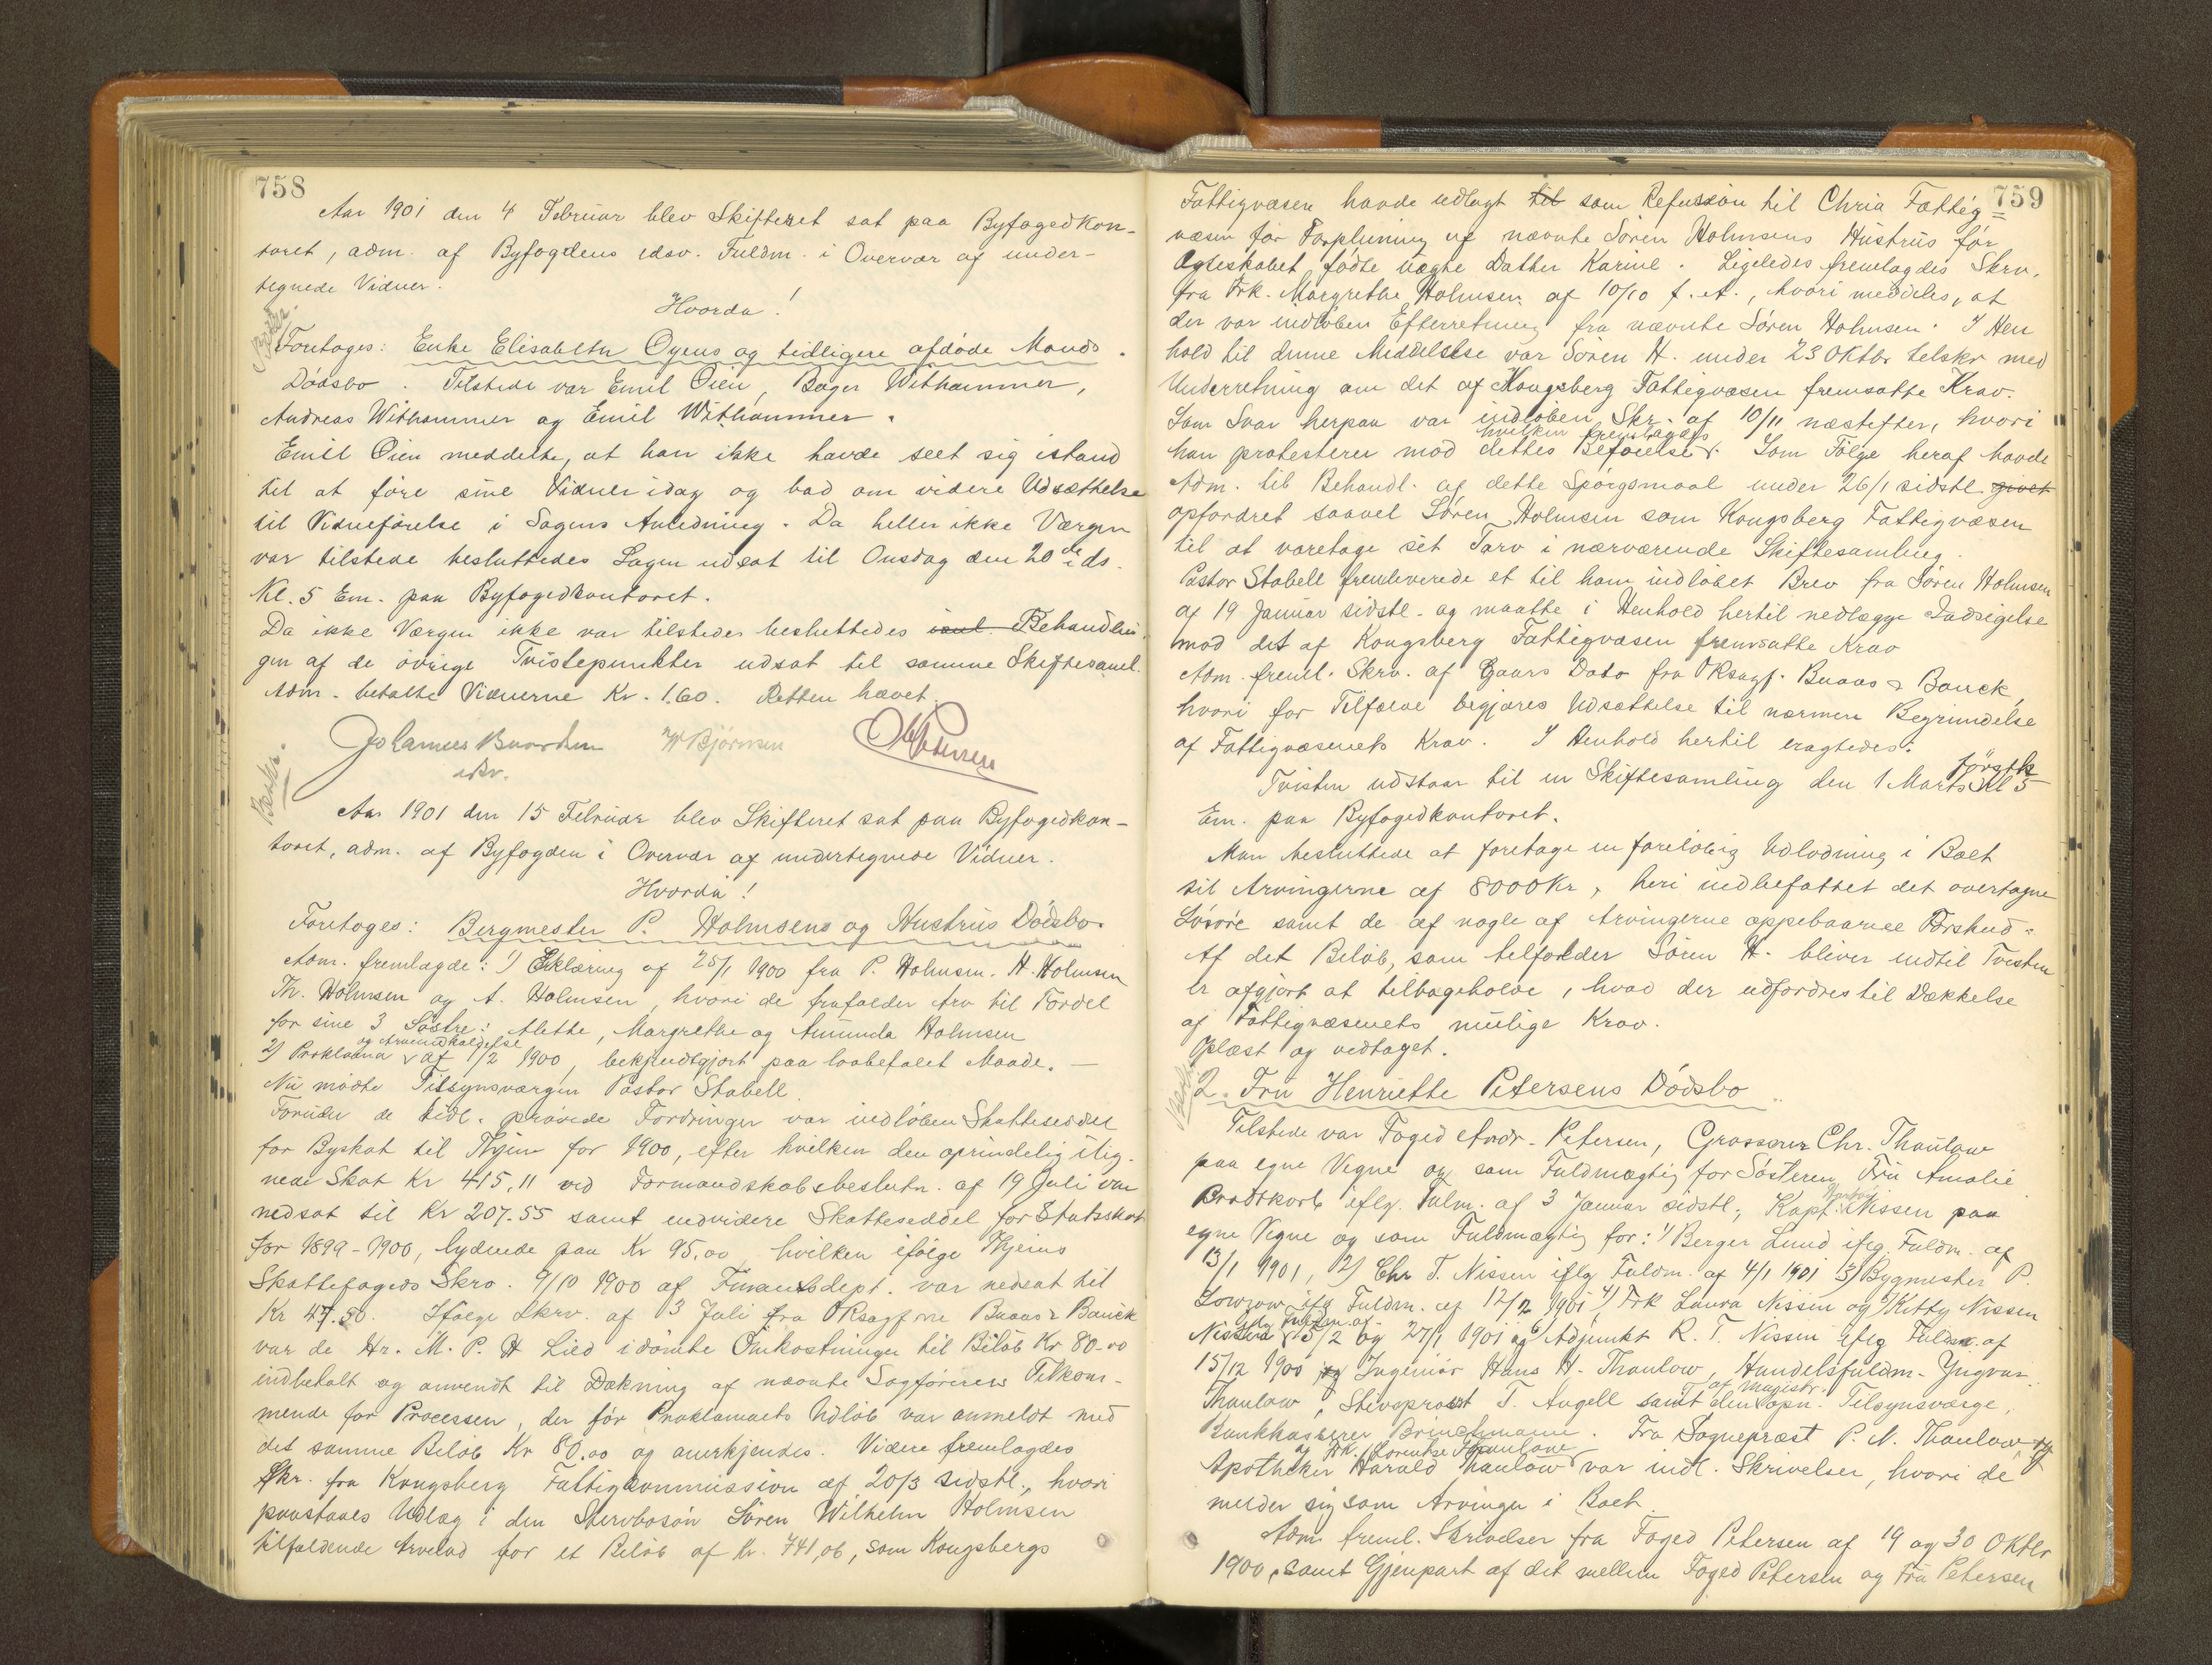 758
Aar 1901 den 4 Februar blev Skifteret sat paa Byfogedkon-
toret, adm. af Byfogdens edsv. Fuldm. i Overvær af under-
tegnede Vidner.
Hvorda!
Foretoges: Enke Elisabeth Oyens og tidligere afdøde Mands
Dødsbo. Tilstede var Emil Øien, Bager Withammer,
Andreas Withammer og Emil Withammer.
Emil Øien meddelte, at han ikke havde seet sig istand
til at føre sine Vidner idag og bad om videre Udsættelse
til Vidneførelse i Sagens Anledning. Da heller ikke Værgen
var tilstede besluttedes Sagen udsat til Onsdag den 20de ds.
Kl. 5 Em. paa Byfogedkontoret.
Da ikke Værgen ikke var tilstede besluttedes Behandlin-
gen af de øvrige Tvistepunkter udsat til samme Skiftesaml.
Adm. betalte Vidnerne Kr. 1.60. Retten hævet.
Johannes W Bjørnsen
Aar 1901 den 15 Februar blev Skifteret sat paa Byfogedkon-
toret, adm. af Byfogden i Overvær af undertegnede Vidner.
Hvorda!
Foretoges: Bergmester P. Holmsens og Hustrus Dødsbo.
Adm. fremlagde: 1) Erklæring af 25/1 1900 fra P. Holmsen. H. Holmsen
Th. Holmsen og A. Holmsen, hvori de frafalder Arv til Fordel
for sine 3 Søstre: Alethe, Margrethe og Amunda Holmsen
og Arveindkaldelse
2) Proklama af 1/2 1900, bekjendtgjort paa lovbefalet Maade. —
Nu mødte Tilsynsværgen Pastor Stabell.
Foruden de tidl. prøvede Fordringer var indløben Skatteseddel
for Byskat til Thjem for 1900, efter hvilken den oprindelig ilig-
nede Skat Kr 415,11 ved Formandskabsbeslutn. af 19 Juli var
nedsat til Kr 207.55 samt endvidere Skatteseddel for Statsskat
for 1899-1900, lydende paa Kr 95.00 hvilken ifølge Thjems
Skattefogeds Skrv. 9/10 1900 af Finantsdept. var nedsat til
Kr 47.50. Ifølge Skrv. af 3 Juli fra ORsagførerne Buaas & Bauck
var de Hr. M. P. H Lied idømte Omkostninger til Beløb Kr 80-00
indbetalt og anvendt til Dækning af nævnte Sagføreres Tilkom-
mende for Processen, der før Proklamaets Udløb var anmeldt med
det samme Beløb Kr 80.00 og anerkjendes. Videre fremlagdes
Skr. fra Kongsberg Fattigkommission af 20/3 sidstl., hvori
paastaaes Udlæg i den Stervbosøn Søren Wilhelm Holmsen
tilfaldende Arvelod for et Beløb af Kr. 741,06, som Kongsbergs
759
Fattigvæsen havde udlagt til som Refusion til Chria Fattig=
væsen for Forpleining af nævnte Søren Holmsens Hustrus før
Ægteskabet fødte uægte Datter Karine. Ligeledes fremlagdes Skrv.
fra Frk. Margrethe Holmsen af 10/10 f. A., hvori meddeles, at
der var indløben Efterretning fra nævnte Søren Holmsen. I Hen
hold til denne Meddelelse var Søren H. under 23 Oktbr tilskr med
Underretning om det af Kongsberg Fattigvæsen fremsatte Krav.
Som Svar herpaa var indløben Skr. af 10/11 næstefter, hvori
hvilken fremlagdes
han protesterer mod dettes Beføielse. Som Følge heraf havde
Adm. til Behandl. af dette Spørgsmaal under 26/1 sidstl. givet
opfordret saavel Søren Holmsen som Kongsberg Fattigvæsen
til at varetage sit Tarv i nærværende Skiftesamling.
Pastor Stabell fremleverede et til ham indløbet Brev fra Søren Holmsen
af 19 Januar sidstl. og maatte i Henhold hertil nedlægge Indsigelse
mod det af Kongsberg Fattigvæsen fremsatte Krav
Adm. freml. Skrv. af Gaars Dato fra ORsagf. Buaas & Bauck,
hvori for Tilfælde begjæres Udsættelse til nærmere Begrundelse
af Fattigvæsenets Krav. I Henhold hertil eragtedes:
førstk
Tvisten udstaar til en Skiftesamling den 1 Marts Kl 5
Em. paa Byfogedkontoret.
Man besluttede at foretage en foreløbig Udlodning i Boet
til Arvingerne af 8000 Kr, heri indbefattet det overtagne
Løsøre samt de af nogle af Arvingerne oppebaarne Forskud.
Af det Beløb, som tilfalder Søren H. bliver indtil Tvisten
er afgjort at tilbageholde, hvad der udfordres til Dækkelse
af Fattigvæsenets mulige Krav.
Oplæst og vedtaget.
2. Fru Henriette Petersens Dødsbo
Tilstede var Foged Andr. Petersen, Grosserer Chr. Thaulow
paa egne Vegne og som Fuldmægtig for Søsteren Fru Amalie
Brodtkorb iflg. Fulm. af 3 Januar sidstl., Kapt. Nissen paa
egne Vegne og som Fuldmægtig for: 1) Berger Lund iflg. Fuldm. af
13/1 1901, 2) Chr T. Nissen iflg Fuldm. af 4/1 1901 3) Bygmester P.
Lowzow iflg Fuldm. af 12/2 1901, 4) Frk Laura Nissen og 5) Kitty Nissen
iflg Fuldm. af
5/2 og 27/1 1901 og 6) Adjunkt R. T. Nissen iflg Fuldm. af
15/12 1900 og Ingeniør Hans H. Thaulow, Handelsfuldm. Yngvar
af Magistr.
Thaulow, Stivsprovst T. Angell samt den opn. Tilsynsværge,
Bankkasserer Brinchmann. Fra Sognepræst P. N. Thaulow og
og Frk. Lorentse Thaulow
Apotheker Harald Thaulow var indl. Skrivelser, hvori de
melder sig som Arvinger i Boet.
Adm freml. Skrivelser fra Foged Petersen af 19 og 30 Oktbr
1900, samt Gjenpart af det mellem Foged Petersen og Fru Petersen